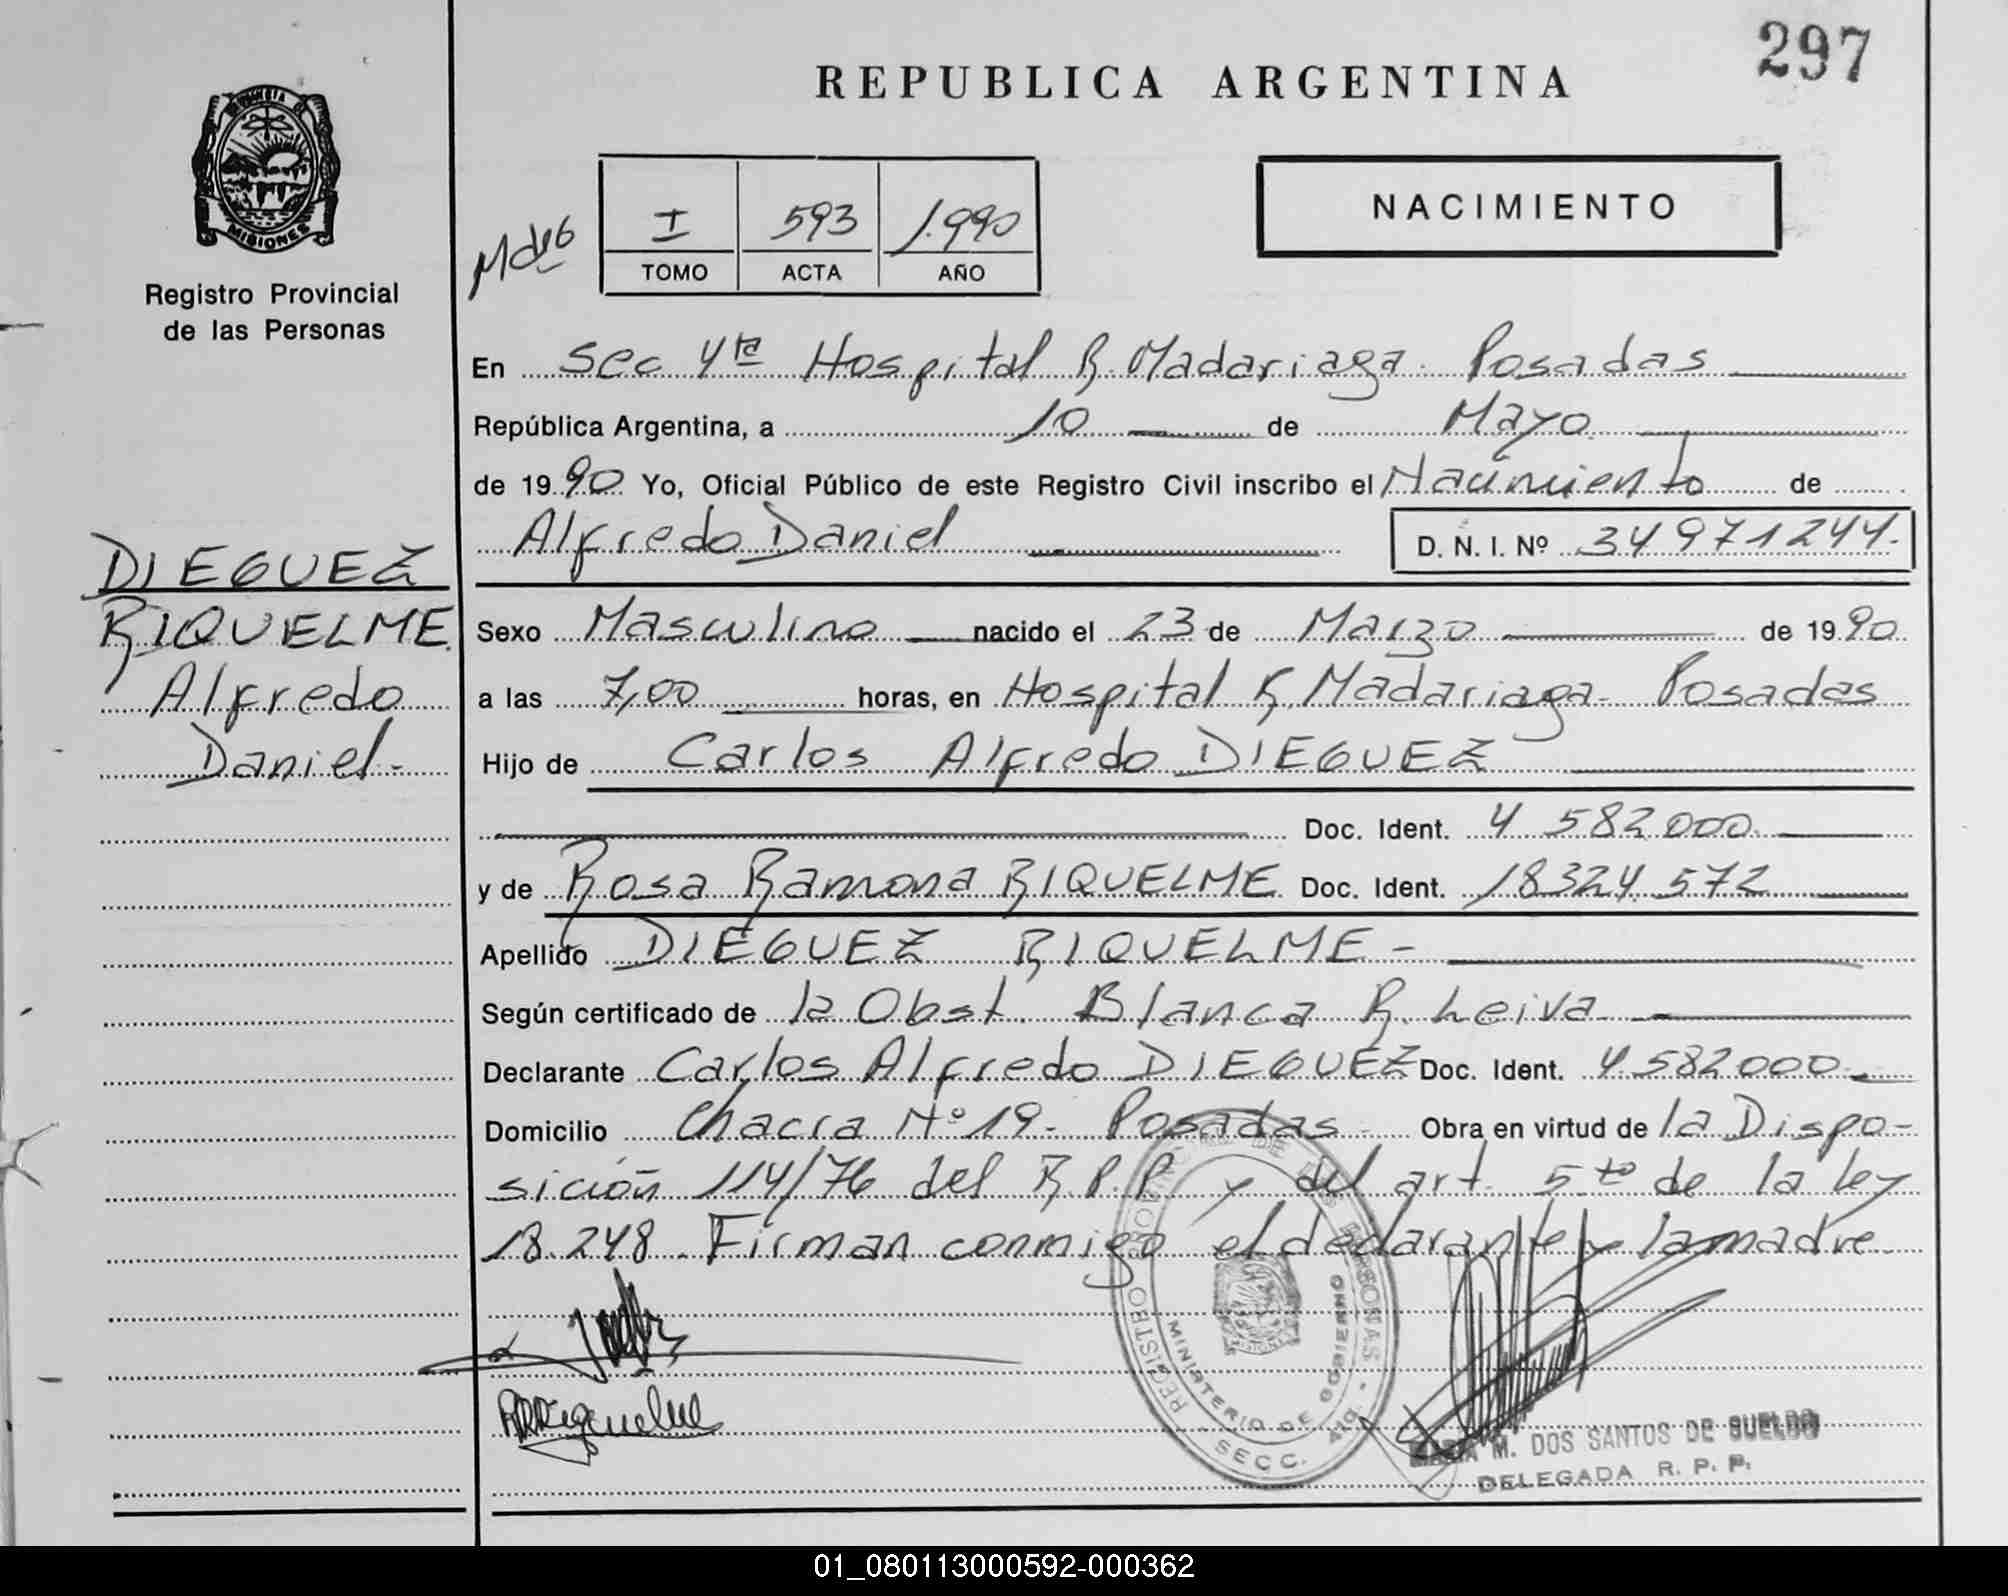 297
REPUBLICA ARGENTINA
PROVINCIA DE MISIONES
Registro Provincial
de las Personas
I 593 1.990
TOMO ACTA AÑO
NACIMIENTO
En Sec 4ta Hospital R. Madariaga. Posadas
República Argentina, a 10 de Mayo
de 1990 Yo, Oficial Público de este Registro Civil inscribo el Nacimiento de
Alfredo Daniel D. N. I. Nº 34971244.
DIEGUEZ
RIQUELME
Alfredo
Daniel-
Sexo Masculino nacido el 23 de Marzo de 1990
a las 7,00 horas, en Hospital R. Madariaga- Posadas
Hijo de Carlos Alfredo DIEGUEZ
Doc. Ident. 4 582000.
y de Rosa Ramona RIQUELME Doc. Ident. 18324.572
Apellido DIEGUEZ RIQUELME-
Según certificado de la Obst. Blanca R. Leiva
Declarante Carlos Alfredo DIEGUEZ Doc. Ident. 4582000-
Domicilio Chacra Nº 19- Posadas- Obra en virtud de la Dispo-
sición 114/76 del R.P.P. y del art. 5to de la ley
18.248. Firman conmigo el declarante y la madre
RRRiquelme
REGISTRO PROVINCIAL DE LAS PERSONAS -
MINISTERIO DE GOBIERNO
SECC. 4ta.
MARIA M. DOS SANTOS DE SUELDO
DELEGADA R. P. P.
01_080113000592-000362